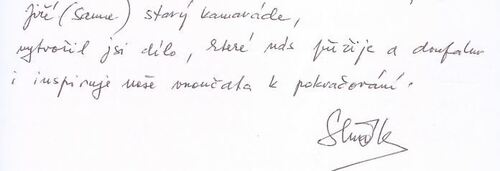 Jiří (Same) starý kamaráde,
vytvořil jsi dílo, které nás přžije a doufám
i inspiruje naše vnoučata k pokračování.